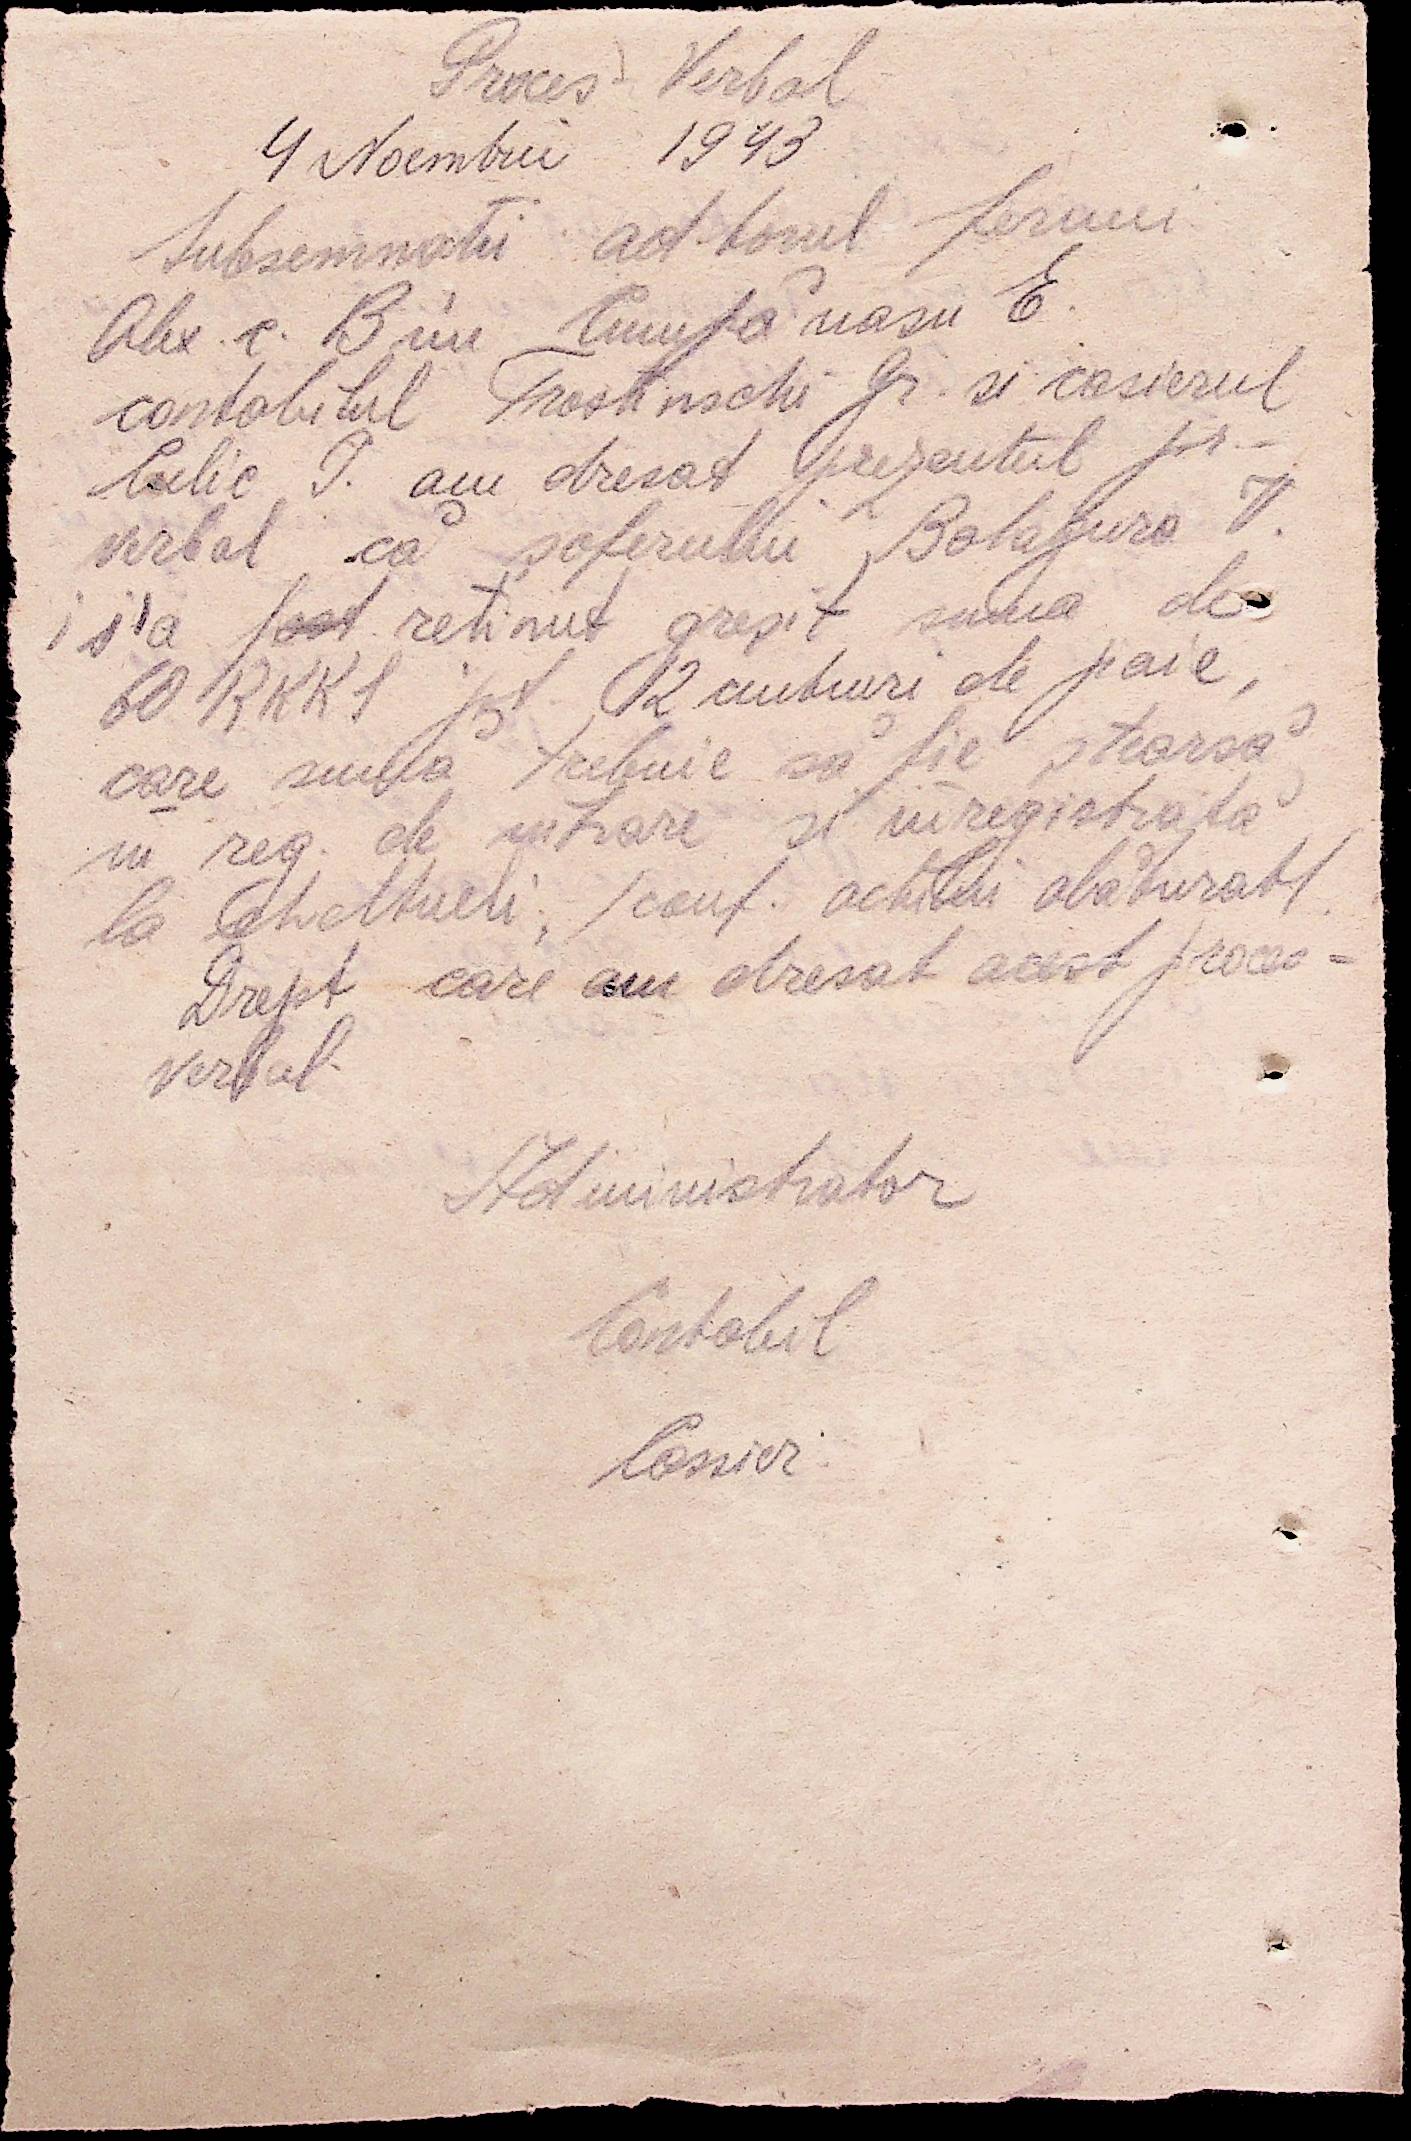 Proces Verbal
4 Noembrie 1943
Subsemnatii ad-torul fermei
Alex. c. Bun E.
contabilul Trostinschi Gr. si casierul
Culic P. am dresat prezentul pr.-
verbal că soferului Botagura V.
i s'a fost retinut gresit suma de
60 RKKS pt. 12 cuturi de paie,
care sumă trebuie să fie stearsă
in reg. de intrare si inregistrată
la cheltueli, /conf. actului alăturat/.
Drept care am dresat acest proces-
verbal.
Administrator
Contabil
Cassier